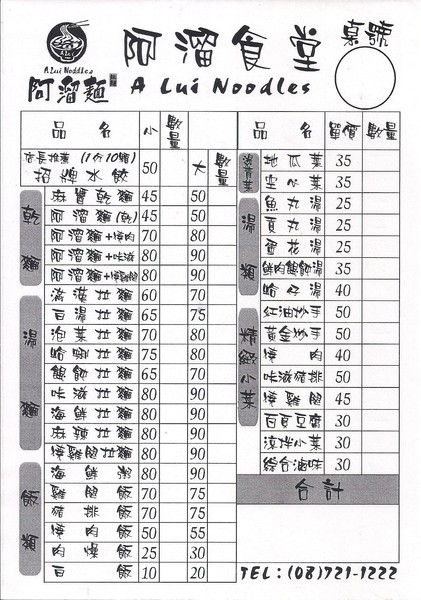 ALui Noddles
阿溜麵
阿溜食堂
A Lui Noodles
桌號
品名 小 數量 大 數量
店長推薦(1份10顆)
招牌水餃 50
乾麵
麻醬乾麵 45 50
阿溜麵(乾) 45 50
阿溜麵+燒肉 70 80
阿溜麵+咔滋 80 90
阿溜麵+燒雞腿 80 90
湯麵
滿漢拉麵 60 70
百湯拉麵 65 75
泡菜拉麵 70 80
蛤蜊拉麵 75 80
餛飩拉麵 65 70
咔滋拉麵 80 90
海鮮拉麵 80 90
麻辣拉麵 80 90
燒雞拉麵 80 90
飯類
海鮮粥 80 90
雞腿飯 70 75
豬排飯 70 75
燒肉飯 50 55
肉燥飯 25 30
白飯 10 20
品名 單價 數量
燙青菜
地瓜葉 35
空心菜 35
湯類
魚丸湯 25
貢丸湯 25
蛋花湯 25
鮮肉餛飩湯 35
蛤仔湯 40
精緻小菜
紅油炒手 50
黃金炒手 50
燒肉 40
咔滋豬排 50
燒雞腿 45
百頁豆腐 30
涼拌小菜 30
綜合滷味 30
合計
TEL:(08)721-1222